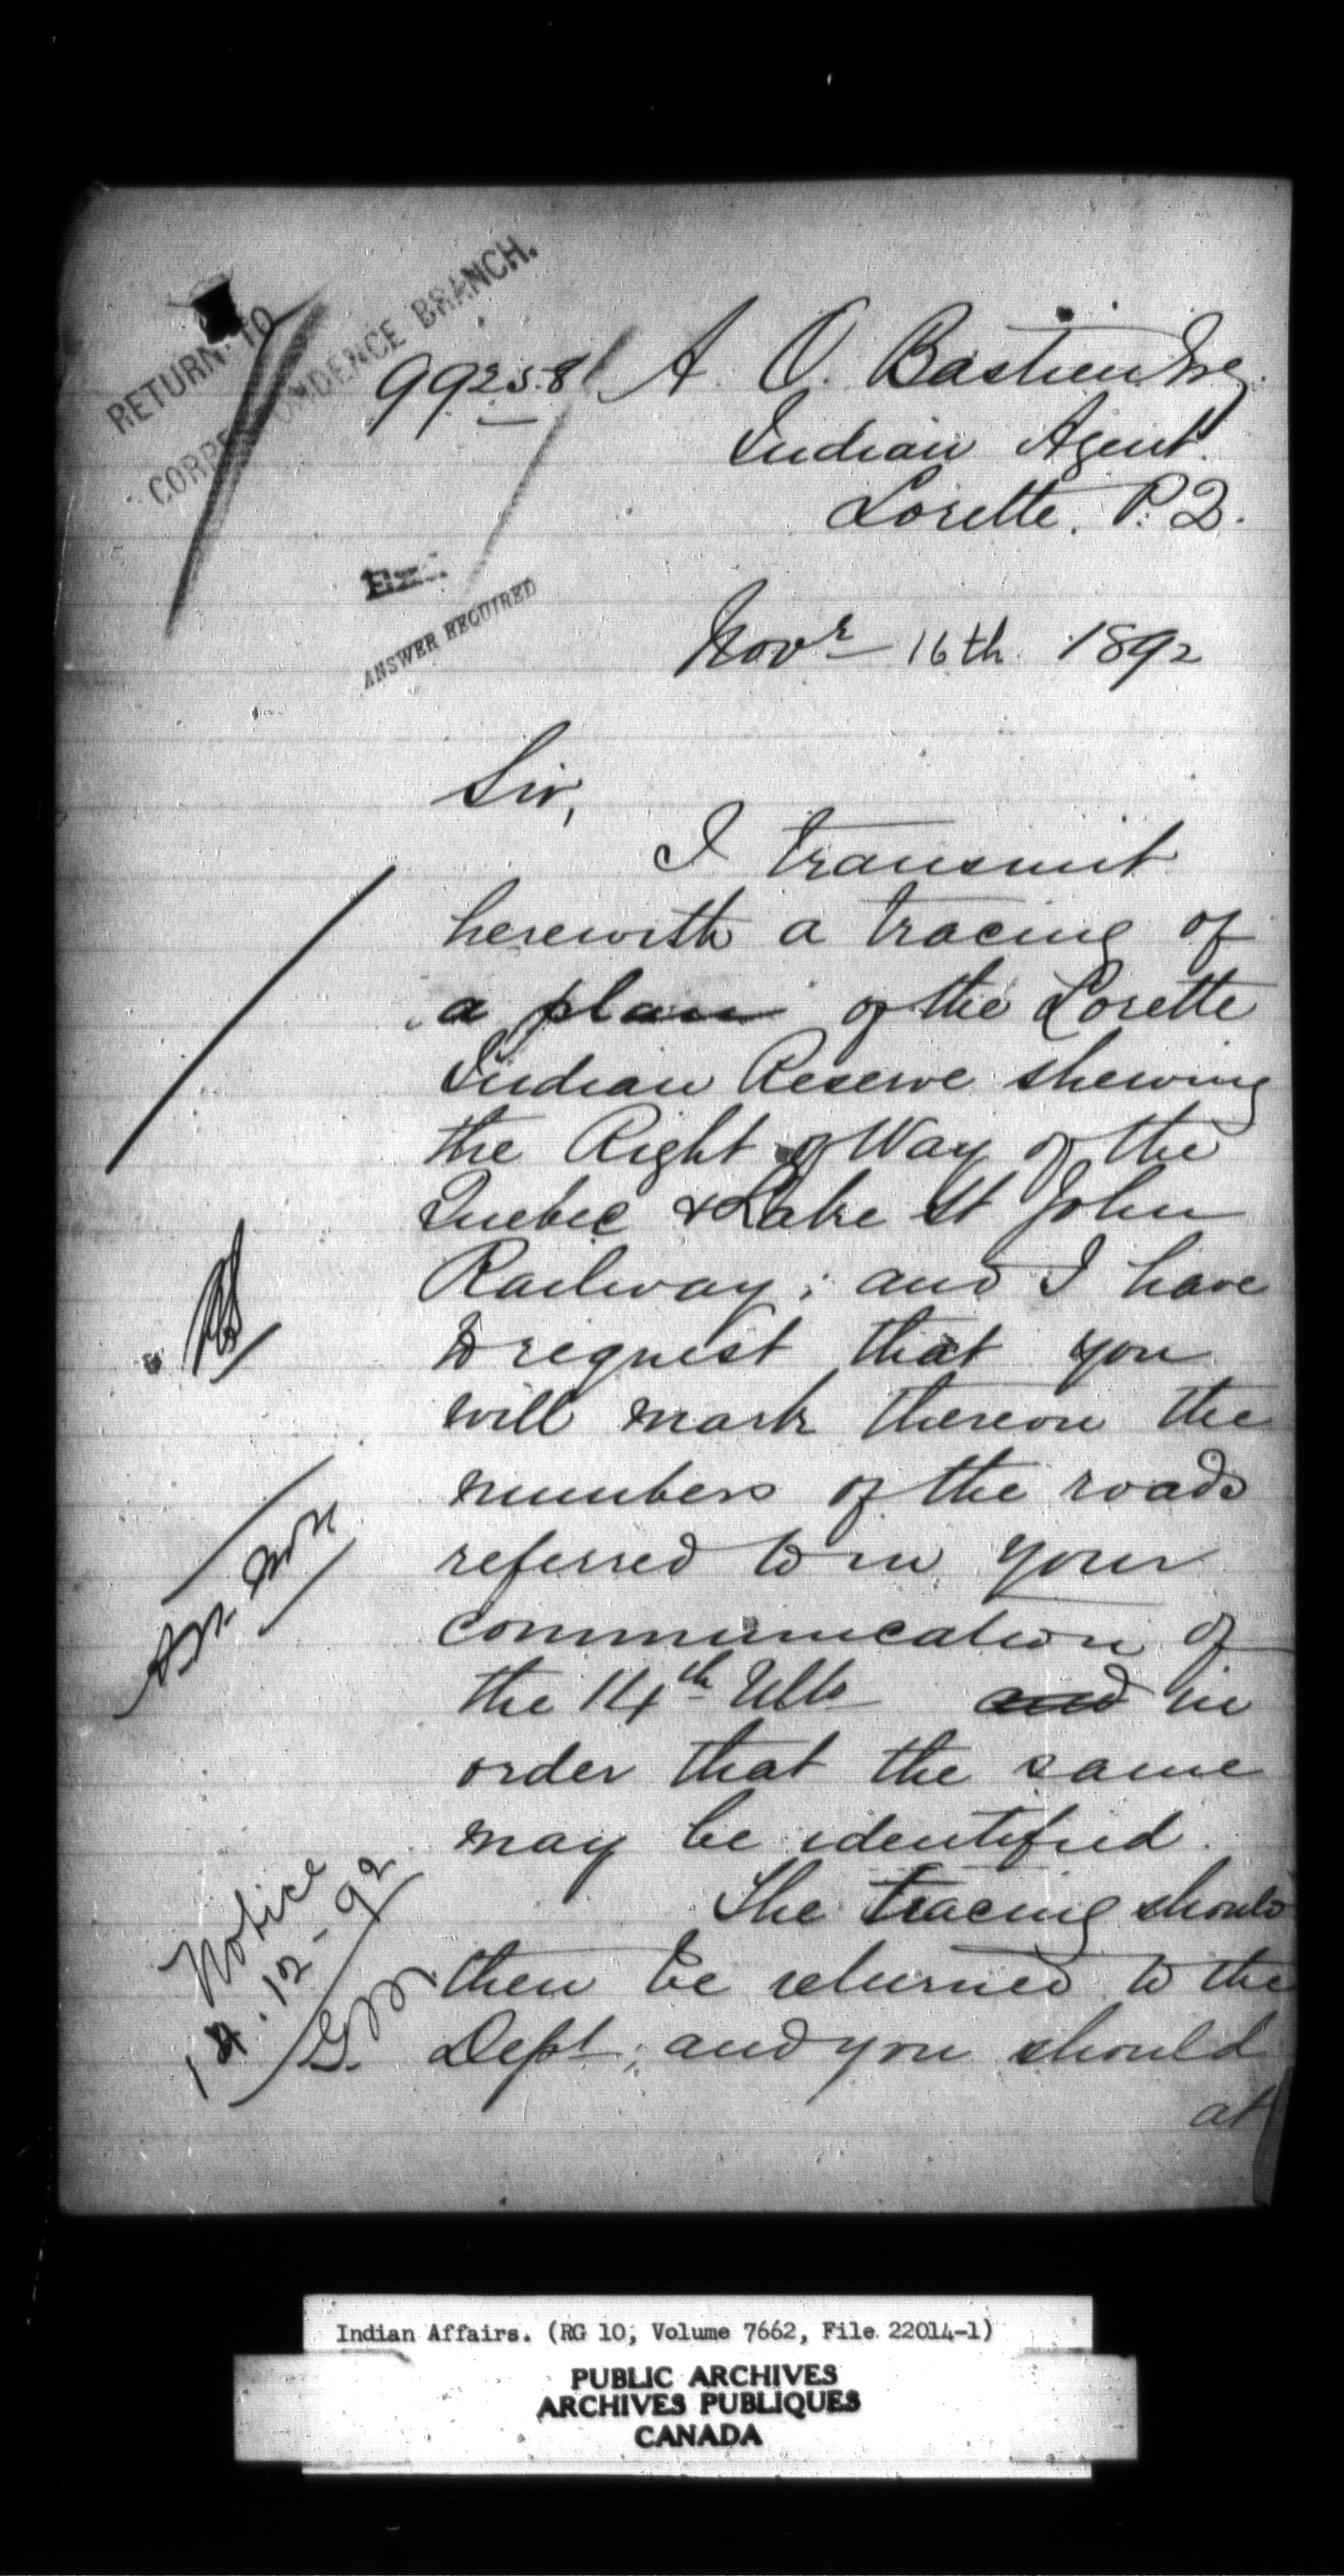 RETURN TO
CORRESPONDENCE BRANCH.
99258
A. O. Bastien Esq.
Indian Agent.
Lorette. P.Q.
ANSWER REQUIRED
Novr 16th 1892
Sir,
I transmit
herewith a tracing of
a plan of the Lorette
Indian Reserve shewing
the Right of Way of the
Quebec & Lake St John
Railway; and I have
to request that you
will mark thereon the
numbers of the roads
referred to in your
communication of
the 14th Ulto and in
order that the same
may be identified.
The tracing should
then be returned to the
Dept; and you should
at
Notice
14.12-92
Indian Affairs. (RG 10, Volume 7662, File 22014-1)
PUBLIC ARCHIVES
ARCHIVES PUBLIQUES
CANADA